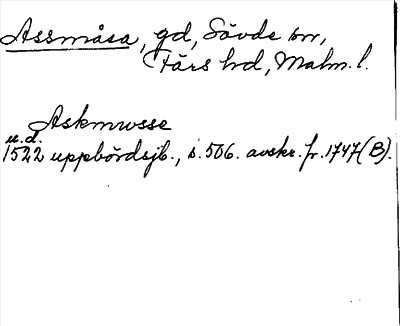 Assmåsa, gd, Sövde sn,
Färs hd, Malm. l.
Askmwsse
u.d.
1522 uppbördsjb., s. 506. avskr. fr. 1747 (B).